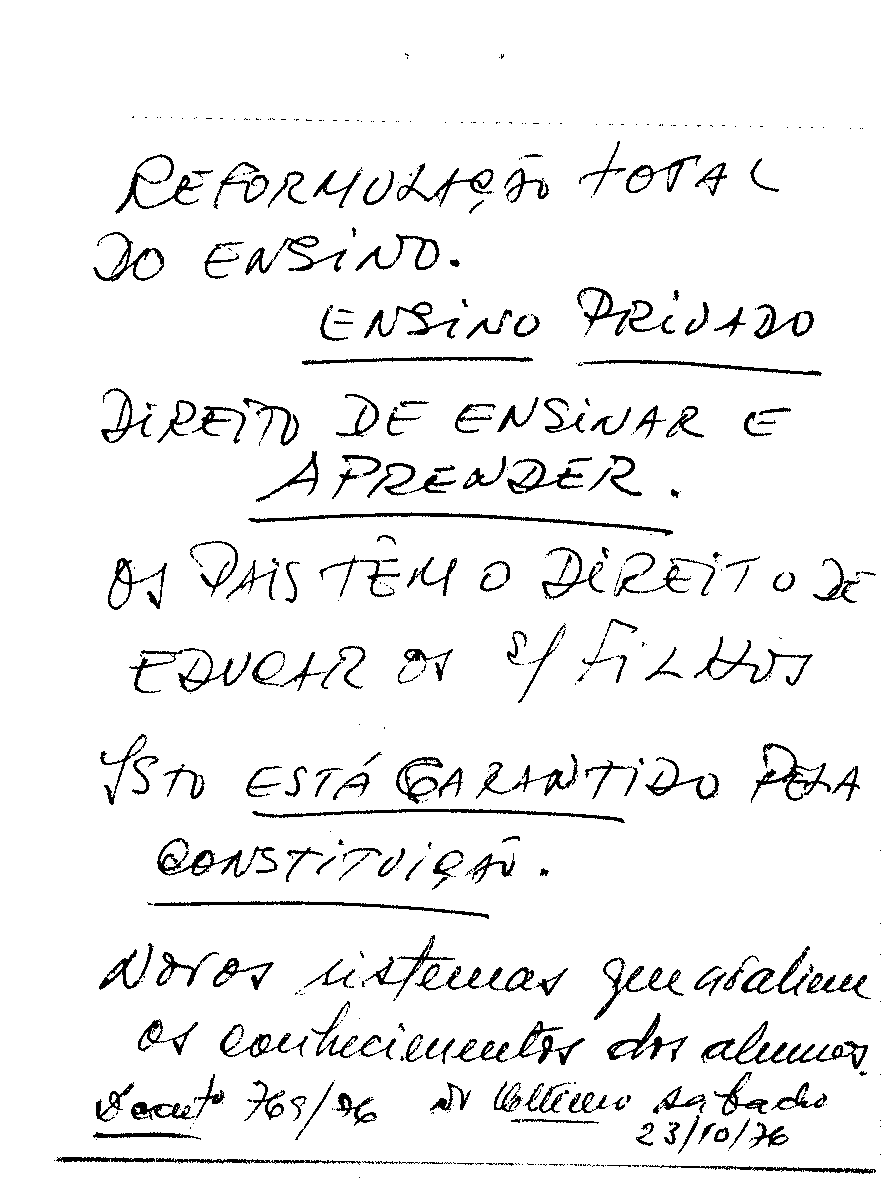 REFORMULAÇÃO TOTAL
DO ENSINO.
ENSINO PRIVADO
DIREITO DE ENSINAR E
APRENDER.
OS PAIS TÊM O DIREITO DE
EDUCAR OS S/ FILHOS
ISTO ESTÁ GARANTIDO PELA
CONSTITUIÇÃO.
Novos sistemas que avaliem
os conhecimentos dos alunos.
Decreto /76 último sabado
23/10/76